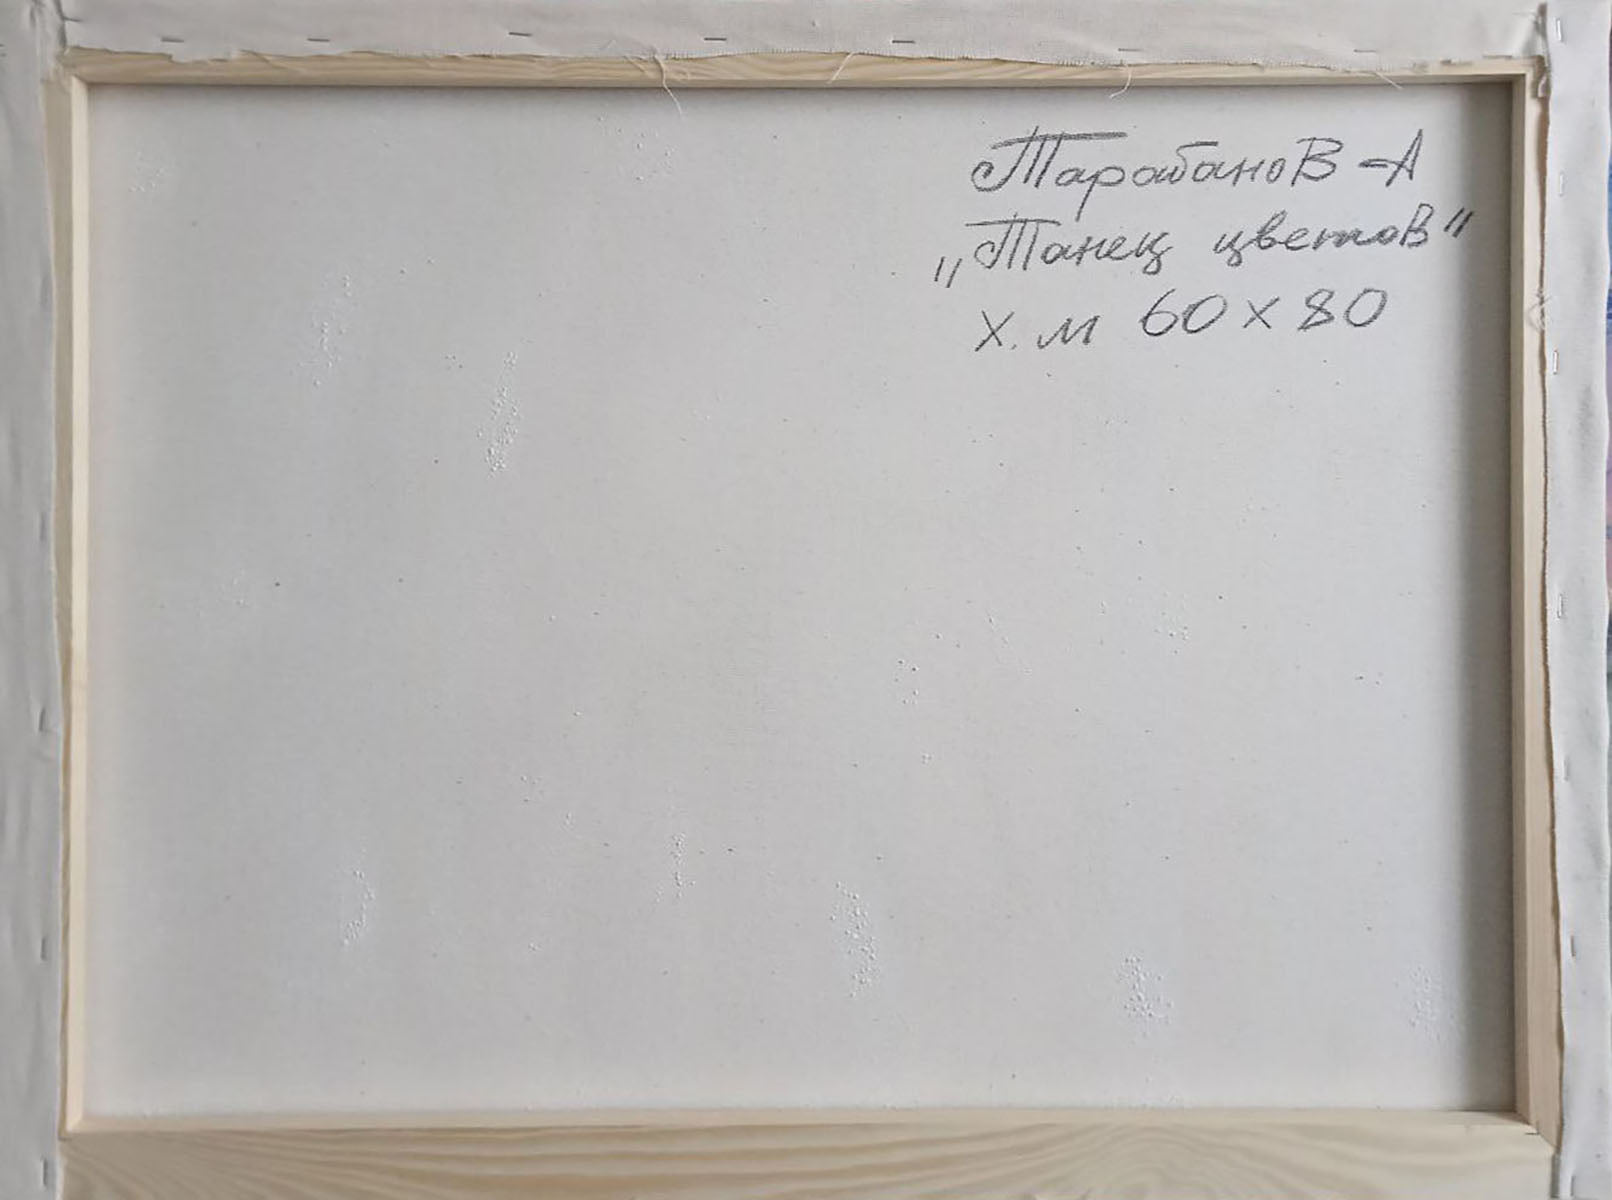 Тарабанов А
„Танец цветов"
х.м 60 х 80